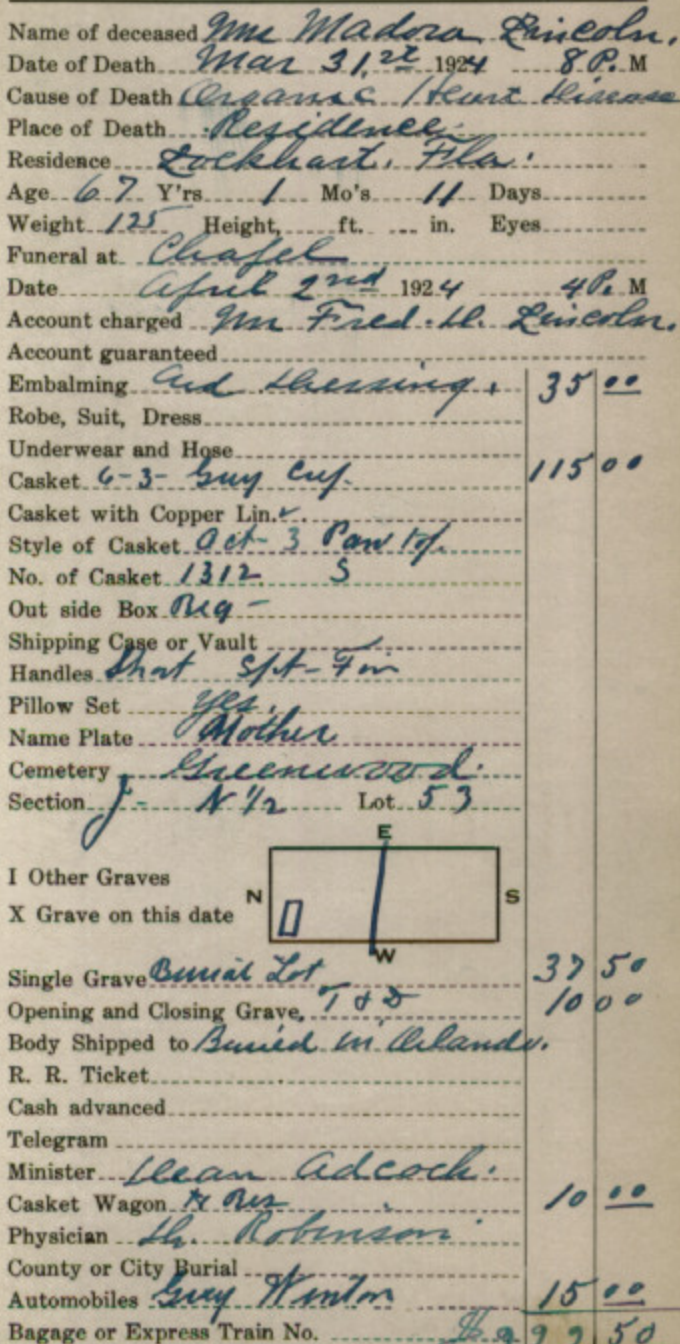 Name of deceased Mrs Madora Lincoln.
Date of Death Mar 31, st 1924 8 P. M
Cause of Death Organic Heart Disease
Place of Death Residence
Residence Lockhart, Fla.
Age 67 Y'rs 1 Mo's 11 Days
Weight 125 Height, ft. in. Eyes
Funeral at Chapel
Date April 2nd 1924 4 P. M
Account charged Mr Fred. H. Lincoln.
Account guaranteed
Embalming and Dressing. 35 00
Robe, Suit, Dress
Underwear and Hose
Casket 6-3- Grey 115 00
Casket with Copper Lin.
Style of Casket Oct- 3
No. of Casket 1312 S
Out side Box Reg -
Shipping Case or Vault
Handles Short
Pillow Set yes.
Name Plate Mother
Cemetery Greenwood.
Section J- N 1/2 Lot 53
E
I Other Graves
N S
X Grave on this date
W
Single Grave Burial Lot 37 50
Opening and Closing Grave, T & D 10 00
Body Shipped to Buried in Orlando.
R. R. Ticket
Cash advanced
Telegram
Minister Dean Adcock.
Casket Wagon 10 00
Physician Robinson
County or City Burial
Automobiles Grey Winton 15 00
Bagage or Express Train No. 50